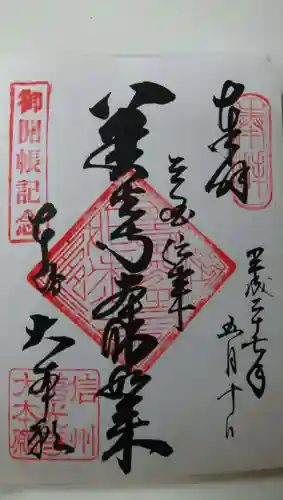 奉拝
奉拝
平成二十七年
五月十日
三国伝来
善光寺本師如来
御開帳記念
本坊
大本願
信州
善光寺
大本願